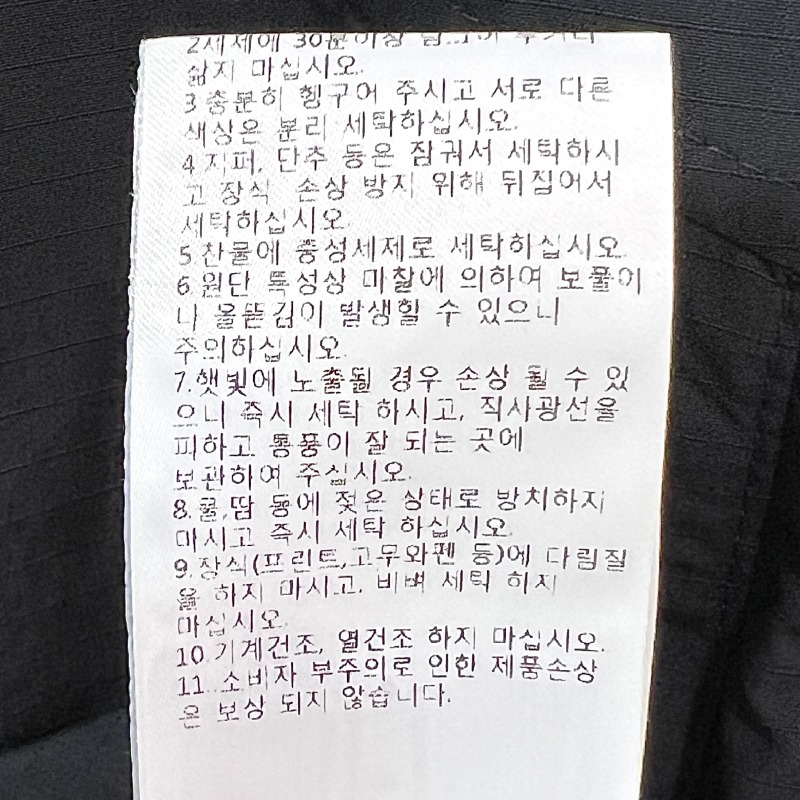 2세제에 30분이상
삶지 마십시오.
3 충분히 헹구어 주시고 서로 다른
색상은 분리 세탁하십시오.
4 지퍼, 단추 등은 잠궈서 세탁하시
고 장식 손상 방지 위해 뒤집어서
세탁하십시오
5 찬물에 중성세제로 세탁하십시오.
6.원단 특성상 마찰에 의하여 보풀이
나 올뜯김이 발생할 수 있으니
주의하십시오.
7.햇빛에 노출될 경우 손상 될 수 있
으니 즉시 세탁 하시고, 직사광선을
피하고 통풍이 잘 되는 곳에
보관하여 주십시오.
8.물,땀 등에 젖은 상태로 방치하지
마시고 즉시 세탁 하십시오.
9.장식(프린트,고무와펜 등)에 다림질
을 하지 마시고, 비벼 세탁 하지
마십시오.
10.기계건조, 열건조 하지 마십시오.
11.소비자 부주의로 인한 제품손상
은 보상 되지 않습니다.